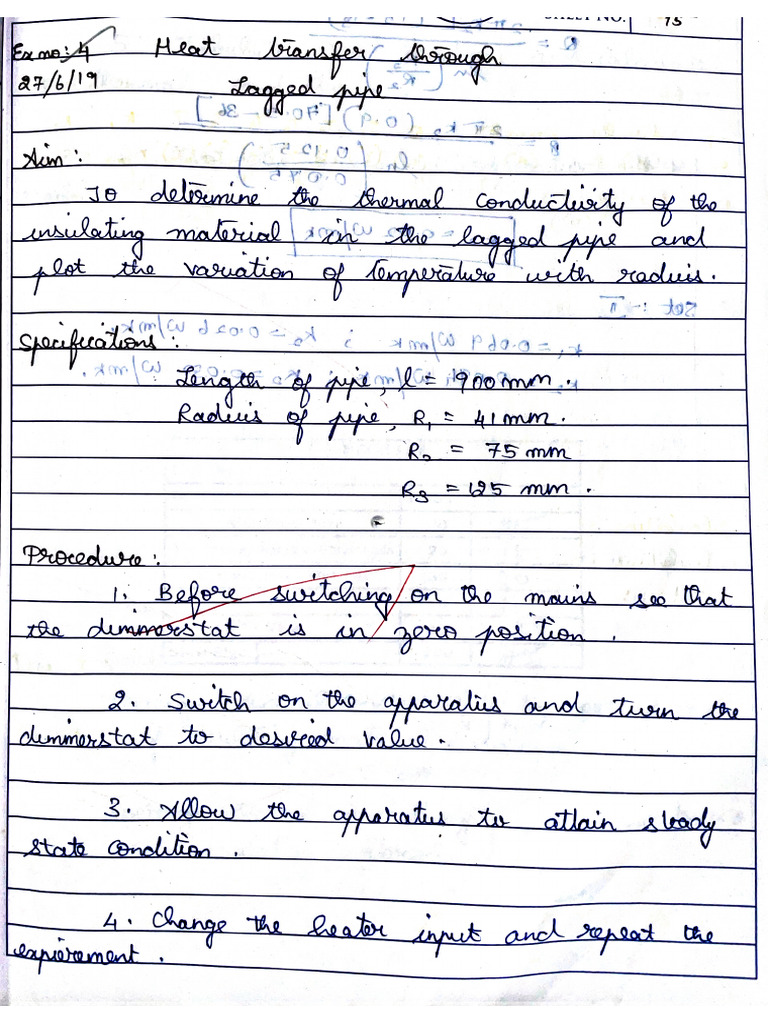 SHEET NO. 15
Ex no: 4 Heat transfer through
27/6/19 Lagged pipe
Aim:
To determine the thermal conductivity of the
insulating material in the lagged pipe and
plot the variation of temperature with radius.
Specifications:
Length of pipe, l = 900 mm.
Radius of pipe, R₁ = 41 mm.
R₂ = 75 mm
R₃ = 125 mm.
Procedure:
1. Before switching on the mains see that
the dimmerstat is in zero position.
2. Switch on the apparatus and turn the
dimmerstat to desired value.
3. Allow the apparatus to attain steady
state condition.
4. Change the heater input and repeat the
expierement.